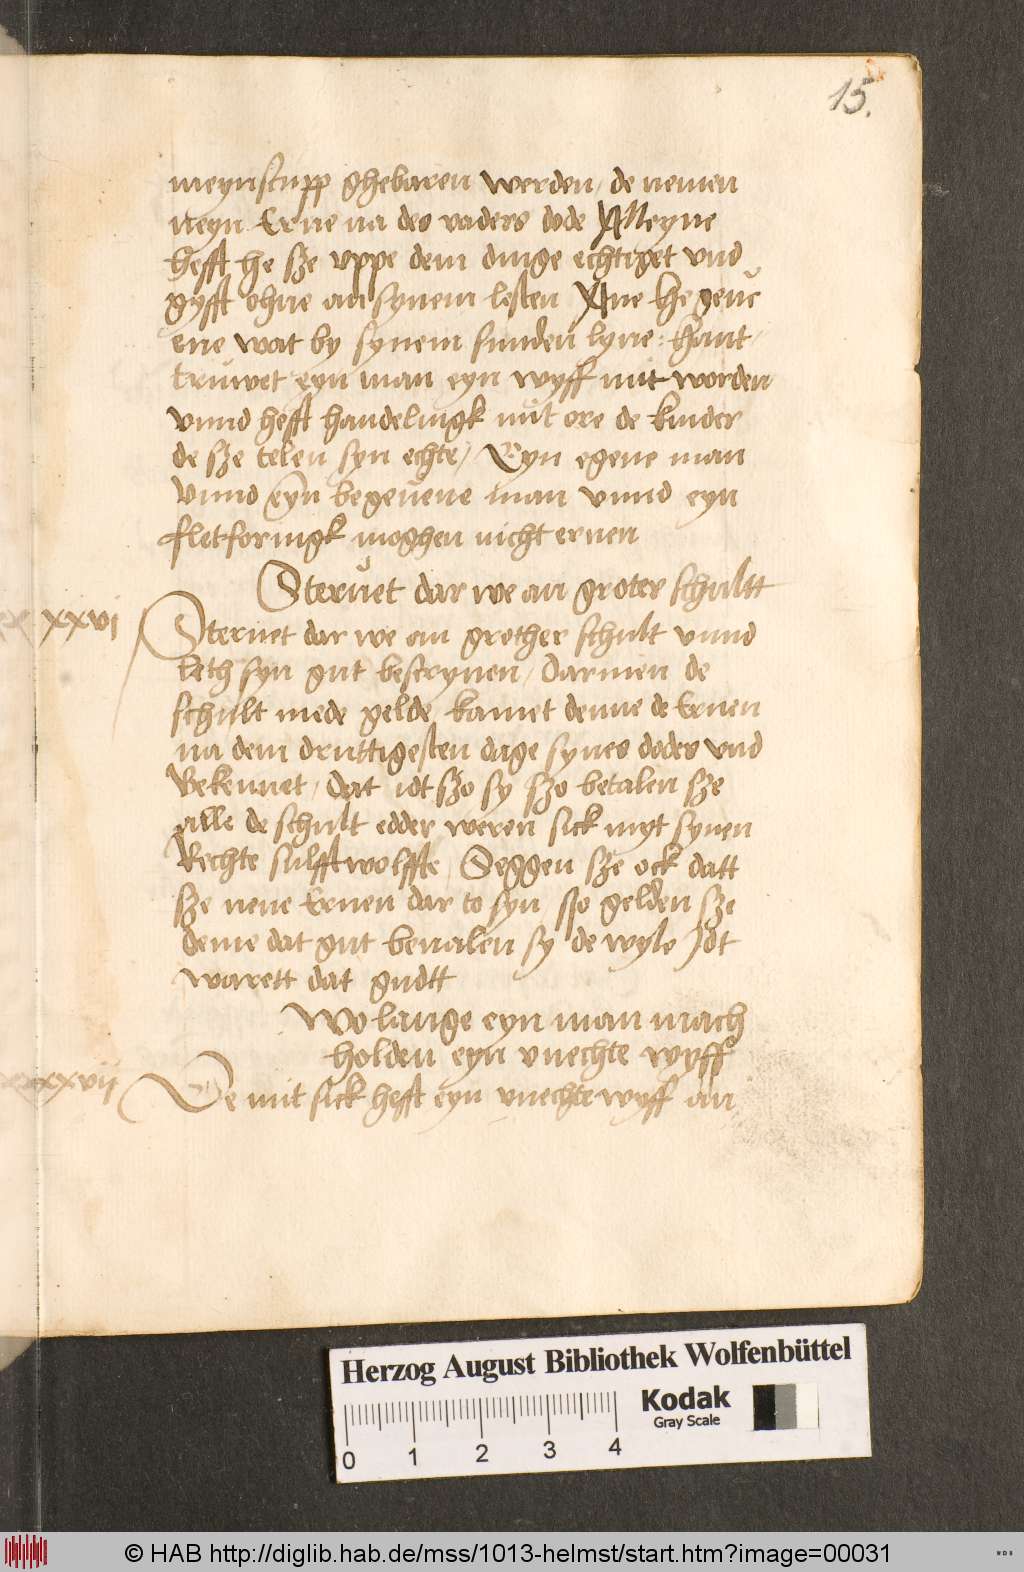 15.
meynscupp ghebaren werden, de nemen
neyn Erue na des vaders dode Alleyne
hefft he sze uppe dem dinge echtiget vnd
gyfft ohne an synem lesten Ane he geue
ene wat by synem sunden lyue: hant
truwet eyn man eyn wyff mit worden
vnnd hefft handelingk mit ore de kinder
de sze telen syn echte, Eyn egene man
Vnnd eyn begeuene man vnnd eyn
fletforingk moghen nicht eruen
Steruet dar we an groter schultt
xxvi
Steruet dar we an grother schult vnnd
leth syn gut bescryuen, darmen de
schult mede gelde, kamet denne de Eruen
na dem druttigesten dage synes dodes vnd
Bekennet, dat idt szo sy szo betalen sze
alle de schult edder weren sick myt synen
Rechte sulfftwolffte, Seggen sze ock datt
sze nene Eruen dar to syn, szo gelden sze
denne dat gut beualen sy de wyle Idt
warett dat gudtt
Wo lange eyn man mach
holden eyn vnechte wyff
xxvii
De mit sick hefft eyn vnechte wyff an
Herzog August Bibliothek Wolfenbüttel
Kodak
Gray Scale
0 1 2 3 4
© HAB http://diglib.hab.de/mss/1013-helmst/start.htm?image=00031